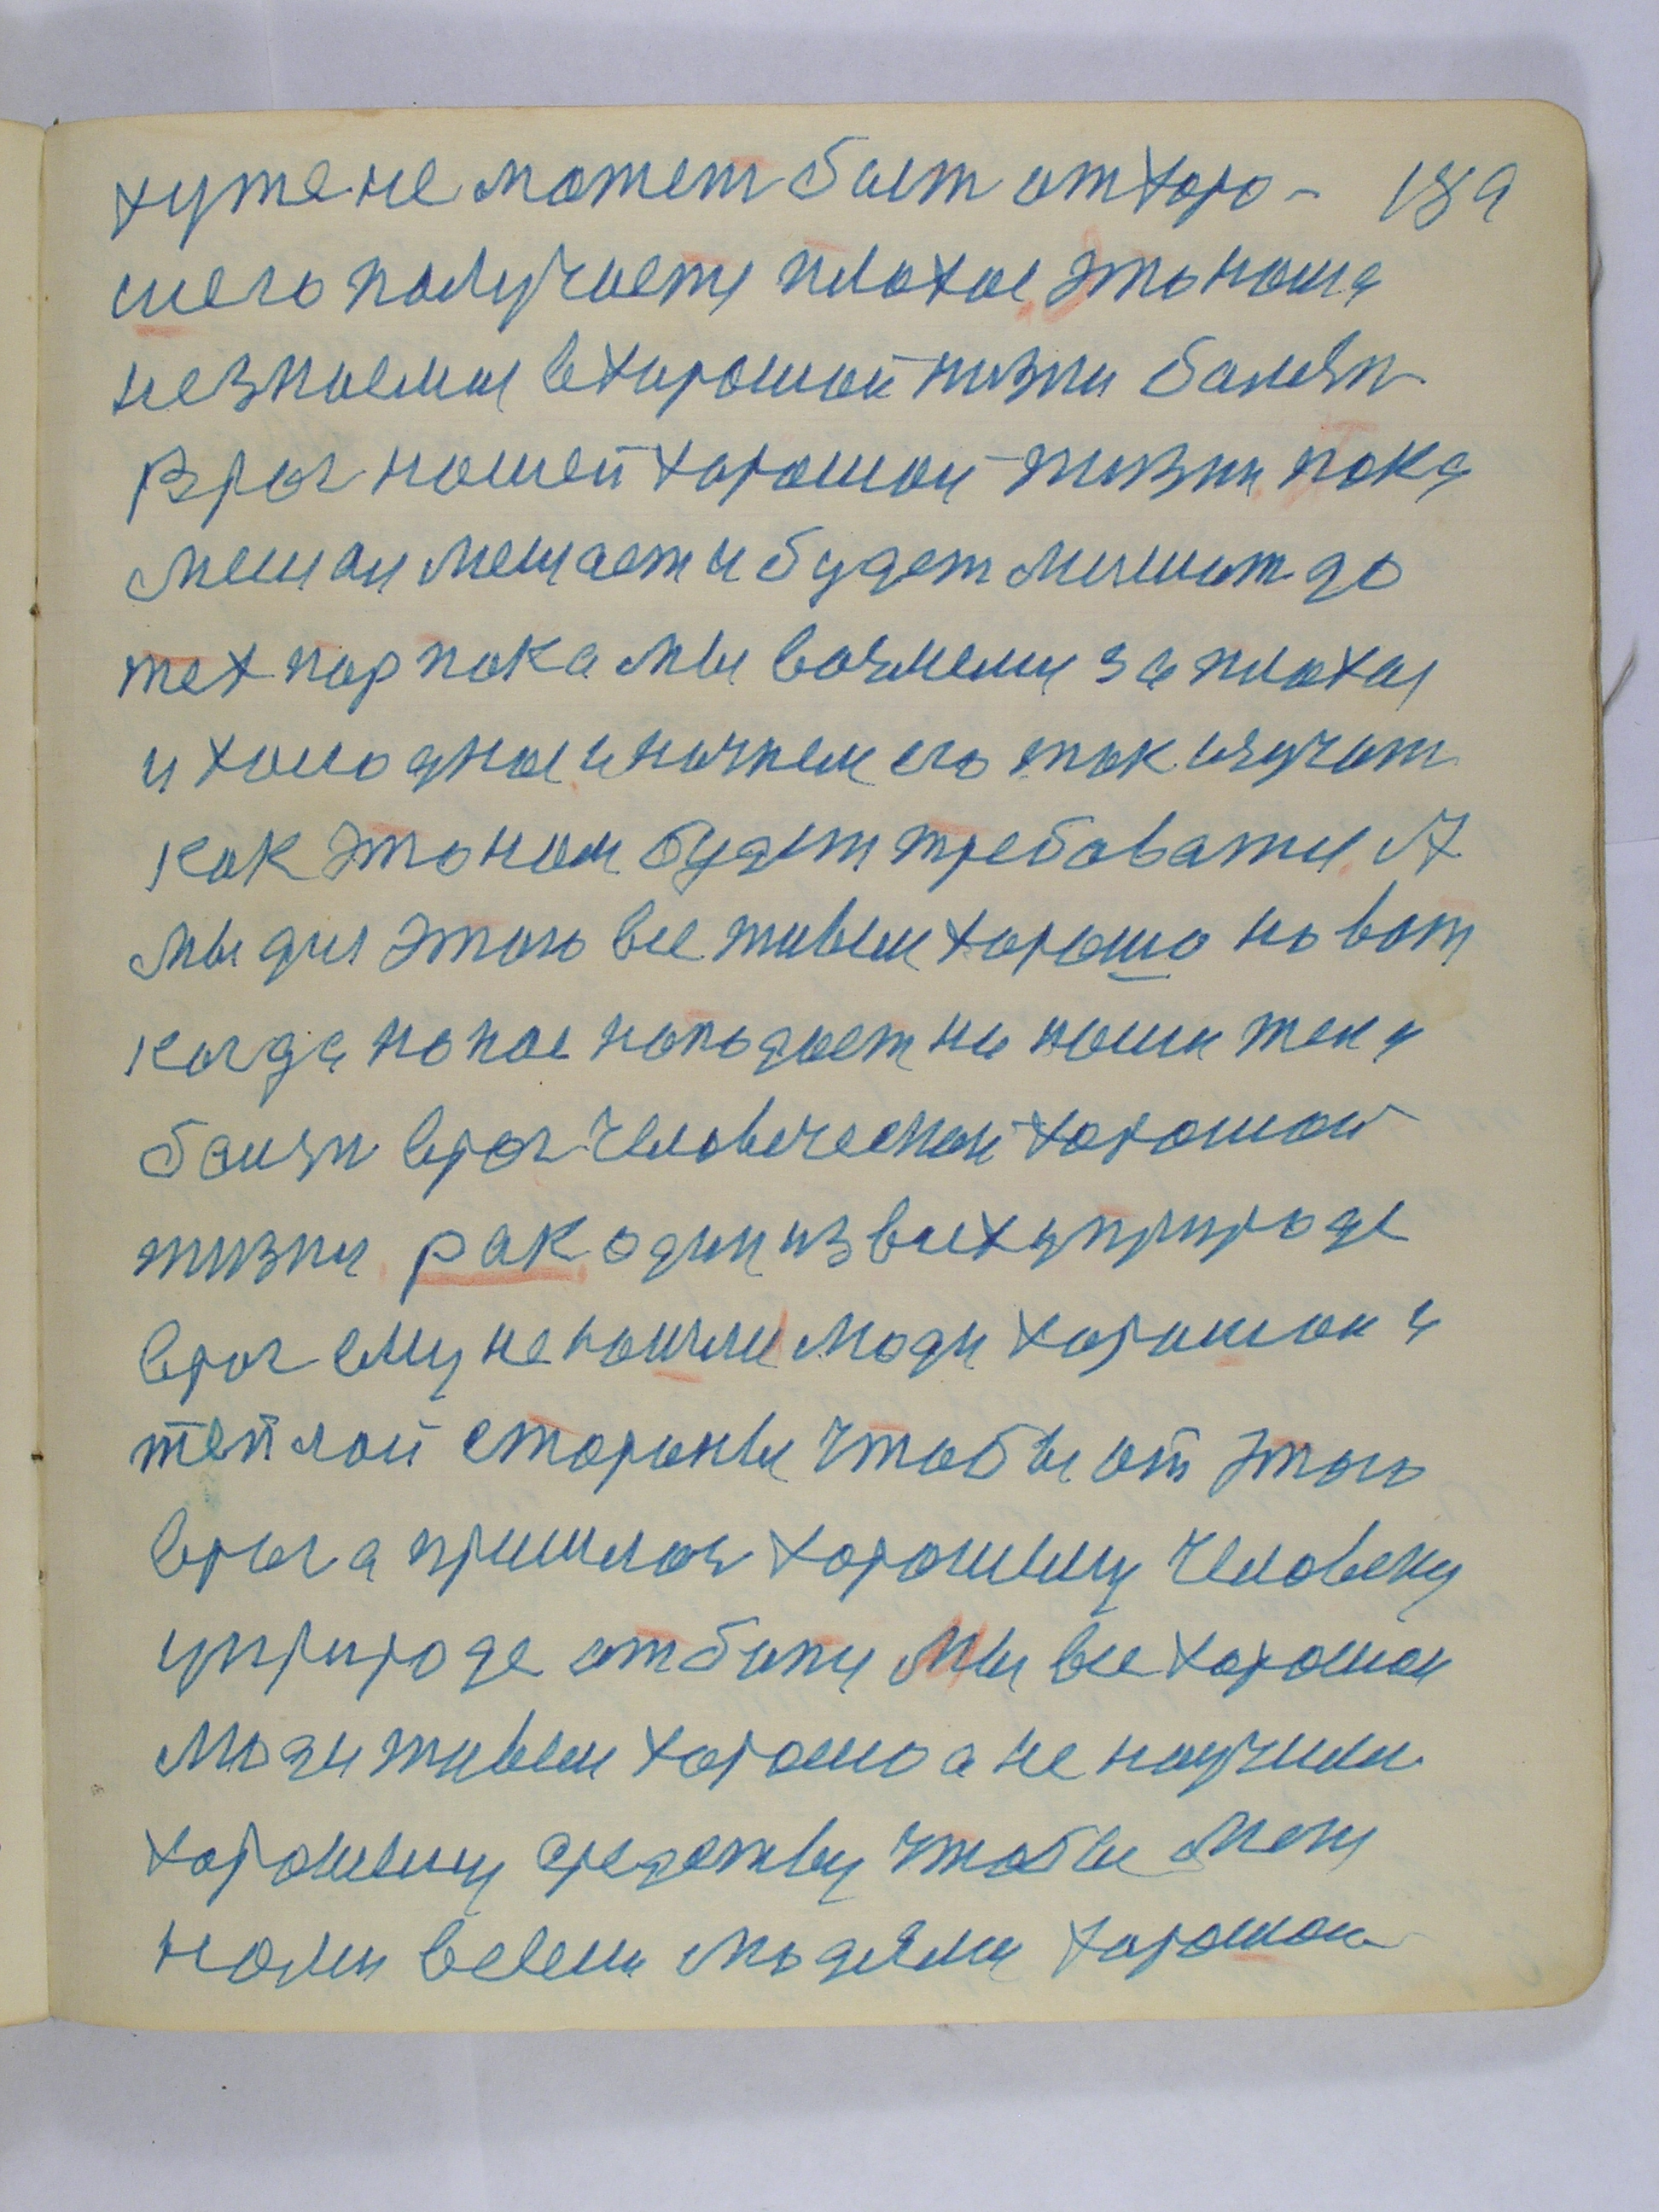 хуже не может быт от хоро- 189
шего получается плохое это наша
незнаемая в хорошой жизни болезн
Враг нашей хорошой жизни пока
мешал мешает и будет мишат до
тех пор пока мы возмемся за плохое
и холодное и начнем его так изучат
как это нам будет требоватся А
мы для этого все живем хорошо но вот
когда на нас нападает на наши тела
болезн враг человеческой хорошой
жизни рак один из всех у природе
враг ему не нашли люди хорошой и
теплой стороны чтобы от этого
врага пришлос хорошему человеку
у природе отбится Мы все хорошои
люди живем хорошо а не научили
хорошему средству чтобы межу
нами всеми людями хорошои